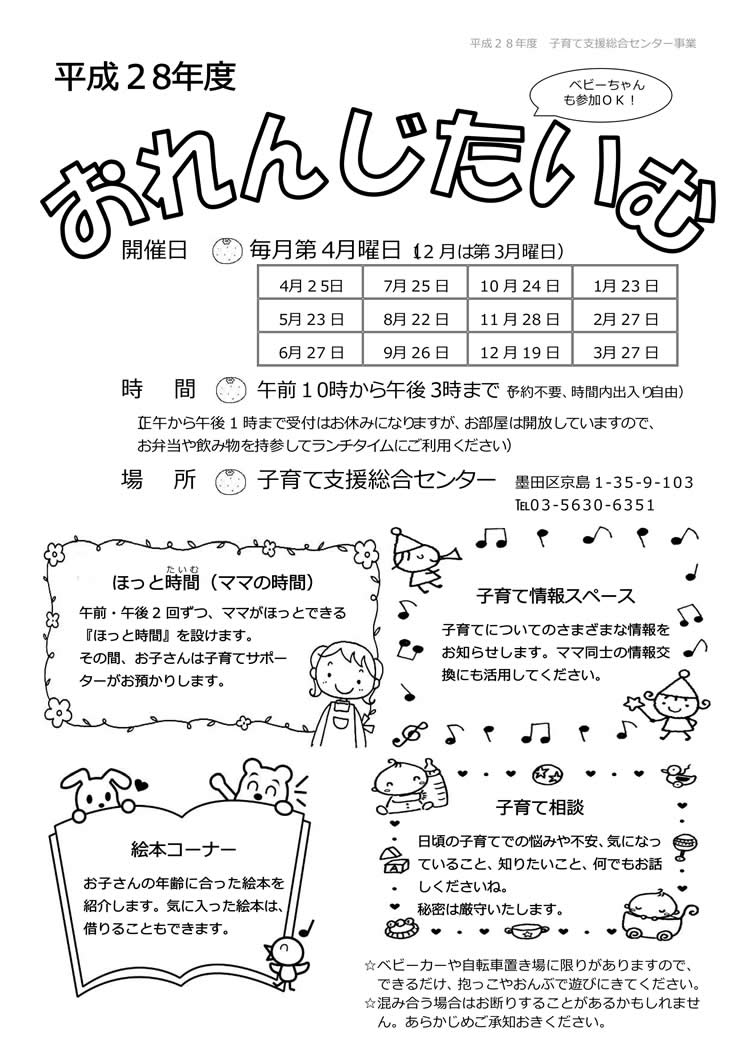 平成２８年度　子育て支援総合センター事業
平成２８年度
ベビーちゃん
も参加ＯＫ！
おれんじたいむ
開催日　毎月第４月曜日（12月は第3月曜日）
4月25日　7月25日　10月24日　1月23日
5月23日　8月22日　11月28日　2月27日
6月27日　9月26日　12月19日　3月27日
時　間　午前10時から午後3時まで（予約不要、時間内出入り自由）
（正午から午後1時まで受付はお休みになりますが、お部屋は開放していますので、
お弁当や飲み物を持参してランチタイムにご利用ください）
場　所　子育て支援総合センター　墨田区京島1-35-9-103
℡03-5630-6351
たいむ
ほっと時間（ママの時間）
午前・午後2回ずつ、ママがほっとできる
『ほっと時間』を設けます。
その間、お子さんは子育てサポー
ターがお預かりします。
子育て情報スペース
子育てについてのさまざまな情報を
お知らせします。ママ同士の情報交
換にも活用してください。
絵本コーナー
お子さんの年齢に合った絵本を
紹介します。気に入った絵本は、
借りることもできます。
子育て相談
日頃の子育てでの悩みや不安、気になっ
ていること、知りたいこと、何でもお話
しくださいね。
秘密は厳守いたします。
☆ベビーカーや自転車置き場に限りがありますので、
できるだけ、抱っこやおんぶで遊びにきてください。
☆混み合う場合はお断りすることがあるかもしれませ
ん。あらかじめご承知おきください。